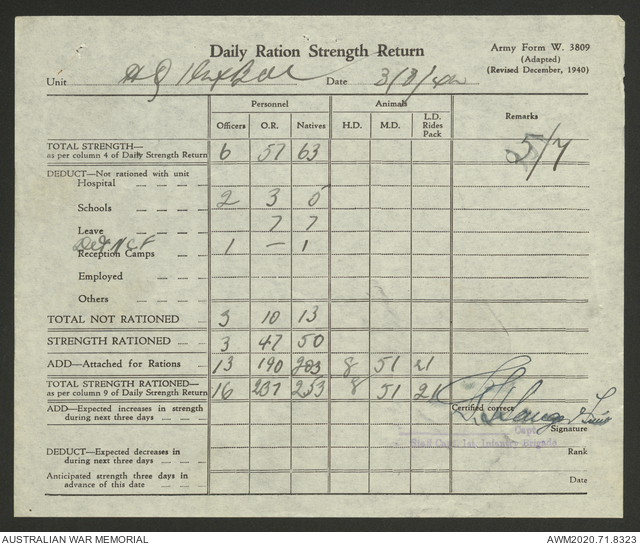 Daily Ration Strength Return
Army Form W. 3809
(Adapted)
(Revised December, 1940)
Unit HQ Date 3/3/42
Personnel Animals Remarks
Officers O.R. Natives H.D. M.D. L.D. Rides Pack
TOTAL STRENGTH—
as per column 4 of Daily Strength Return 6 57 63 5/7
DEDUCT—Not rationed with unit
Hospital
Schools 2 3 5
Leave 7 7
Reception Camps 1 — 1
Employed
Others
TOTAL NOT RATIONED 3 10 13
STRENGTH RATIONED 3 47 50
ADD—Attached for Rations 13 190 203 8 51 21
TOTAL STRENGTH RATIONED—
as per column 9 of Daily Strength Return 16 237 253 8 51 21
ADD—Expected increases in strength
during next three days
Certified correct
Signature
Capt.
Staff Capt. 1st. Infantry Brigade
DEDUCT—Expected decreases in
during next three days
Rank
Anticipated strength three days in
advance of this date
Date
AUSTRALIAN WAR MEMORIAL AWM2020.71.8323